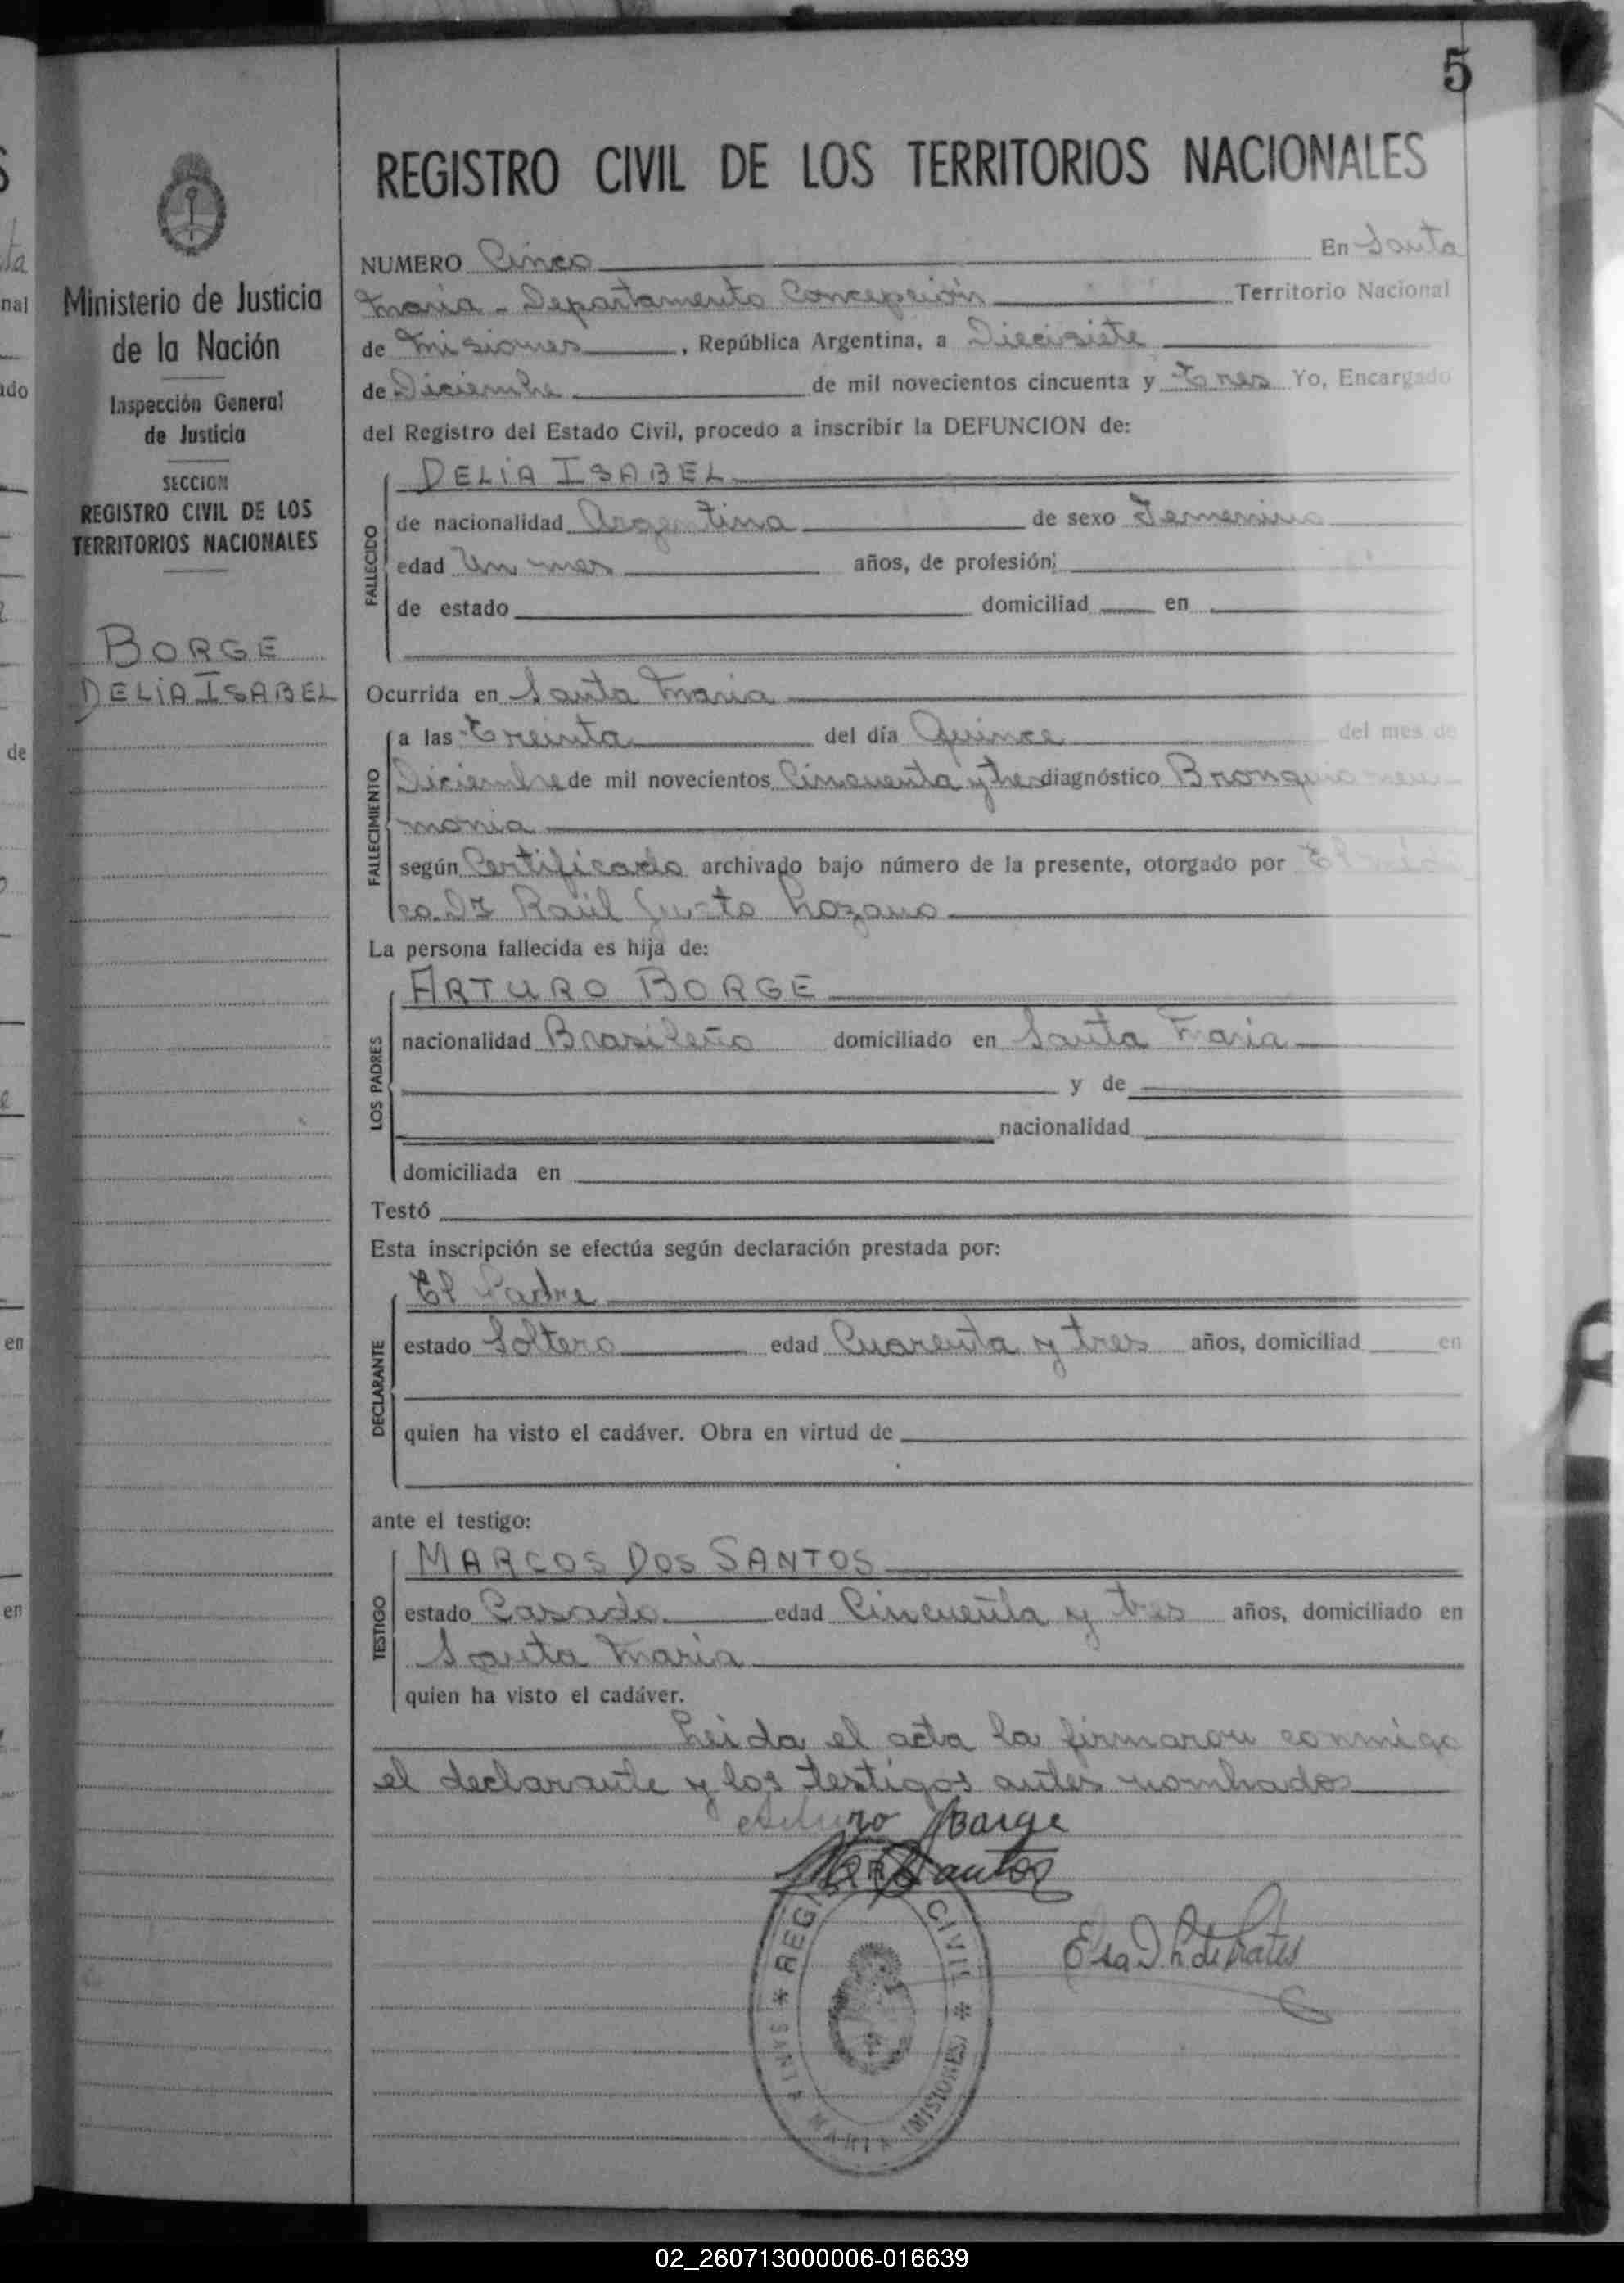 5
REGISTRO CIVIL DE LOS TERRITORIOS NACIONALES
Ministerio de Justicia
de la Nación
Inspección General
de Justicia
SECCION
REGISTRO CIVIL DE LOS
TERRITORIOS NACIONALES
BORGE
DELIA ISABEL
NUMERO Cinco En Santa
Maria - Departamento Concepción Territorio Nacional
de Misiones, República Argentina, a Diecisiete
de Diciembre de mil novecientos cincuenta y Tres Yo, Encargado
del Registro del Estado Civil, procedo a inscribir la DEFUNCION de:
FALLECIDO
DELIA ISABEL
de nacionalidad Argentina de sexo Femenino
edad Un mes años, de profesión
de estado domiciliad en
Ocurrida en Santa Maria
FALLECIMIENTO
a las Treinta del día Quince del mes de
Diciembre de mil novecientos Cincuenta y tres diagnóstico Bronquio neu-
monia
según Certificado archivado bajo número de la presente, otorgado por El médi
co. Dr Raúl Justo Lozano
La persona fallecida es hija de:
LOS PADRES
ARTURO BORGE
nacionalidad Brasileño domiciliado en Santa Maria
y de
nacionalidad
domiciliada en
Testó
Esta inscripción se efectúa según declaración prestada por:
DECLARANTE
El Padre
estado Soltero edad Cuarenta y tres años, domiciliad en
quien ha visto el cadáver. Obra en virtud de
ante el testigo:
TESTIGO
MARCOS DOS SANTOS
estado Casado edad Cincuenta y tres años, domiciliado en
Santa Maria
quien ha visto el cadáver.
Leida el acta la firmaron conmigo
el declarante y los testigos antes nombrados
Arturo Borge
Santos
REGISTRO CIVIL * SANTA MARIA (MISIONES) *
02_260713000006-016639